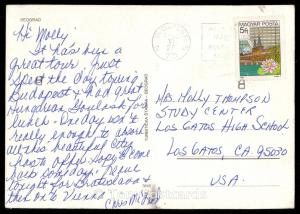 BEOGRAD
Hi Molly!
It has been a
great tour. Just
spent the day touring
Budapest & had great
Hungarian Goulash for
lunch. One day isn't
really enough to
all this beautiful city
has to offer. Hope to come
back someday. Leave
tonight for Bratislava &
then on to Vienna
MAGYAR POSTA
5Ft
Ms. Molly Thompson
Study Center
Los Gatos High School
Los Gatos, CA 95030
USA